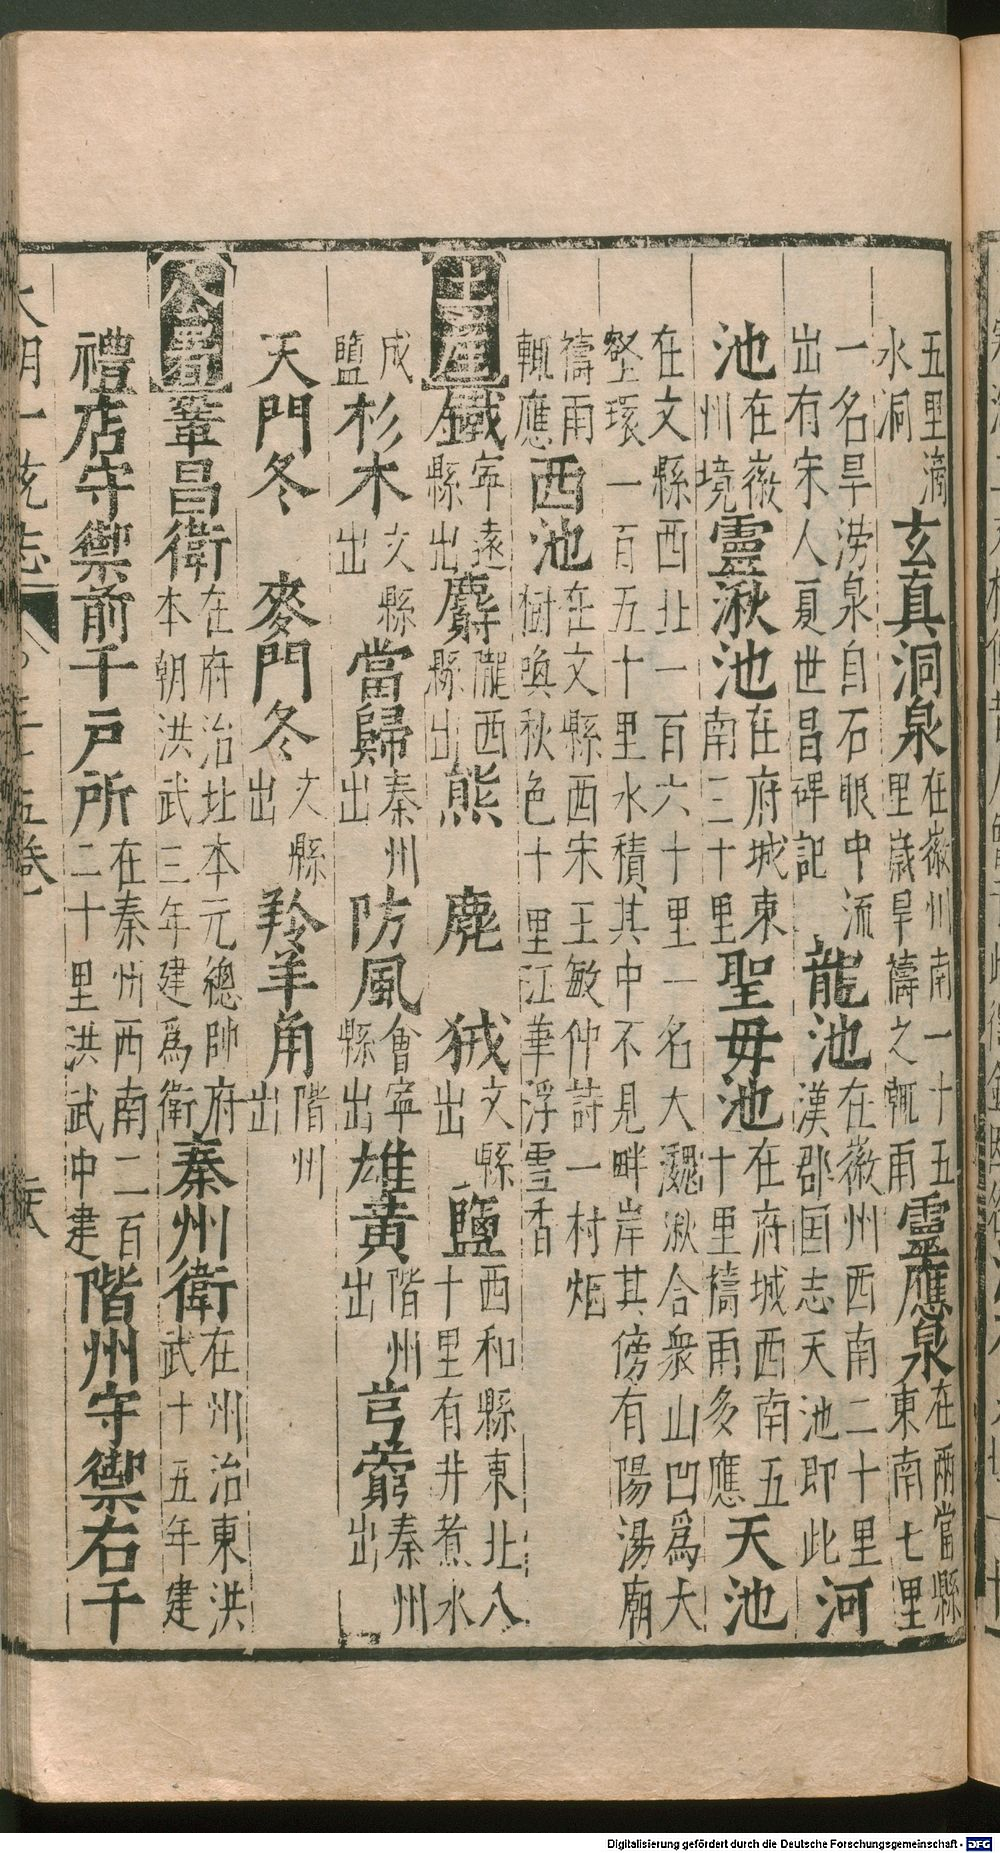 五里滴水洞玄真洞泉在徽州南一十五里歲旱禱之輒雨靈應泉在兩當縣東南七里
一名旱澇泉自石眼中流出有宋人夏世昌碑記龍池在徽州西南二十里漢郡国志天池即此河
池在徽州境靈湫池在府城東南三十里聖毋池在府城西南五十里禱雨多應天池
在文縣西北一百六十里一名大魏湫合衆山凹爲大壑環一百五十里水積其中不見畔岸其傍有陽湯廟
禱雨輒應西池在文縣西宋王敏仲詩一村烟樹喚秋色十里江華浮雪香
土産鐵寧遠縣出麝隴西縣出熊 麂 狨文縣出鹽西和縣東北八十里有井煮水
成鹽杉木文縣出當歸秦州出防風會寧縣出雄黃階州出芎藭秦州出
天門冬 麥門冬文縣出羚羊角階州出
公署鞏昌衛在府治北本元總帥府本朝洪武三年建爲衛秦州衛在州治東洪武十五年建
禮店守禦前千戶所在秦州西南二百二十里洪武中建階州守禦右千
大明一統志
卷
Digitalisierung gefördert durch die Deutsche Forschungsgemeinschaft - DFG